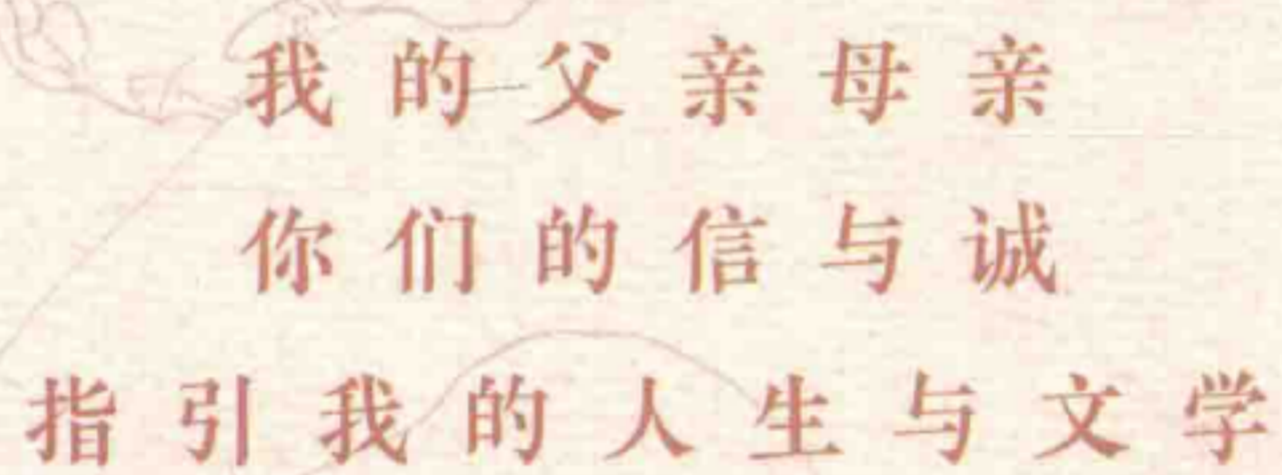 我的父亲母亲
你们的信与诚
指引我的人生与文学